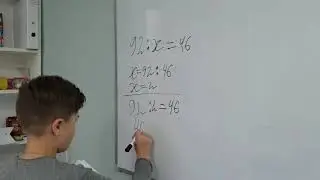 92:x=46
x=92:46
x=2
92:2=46
46